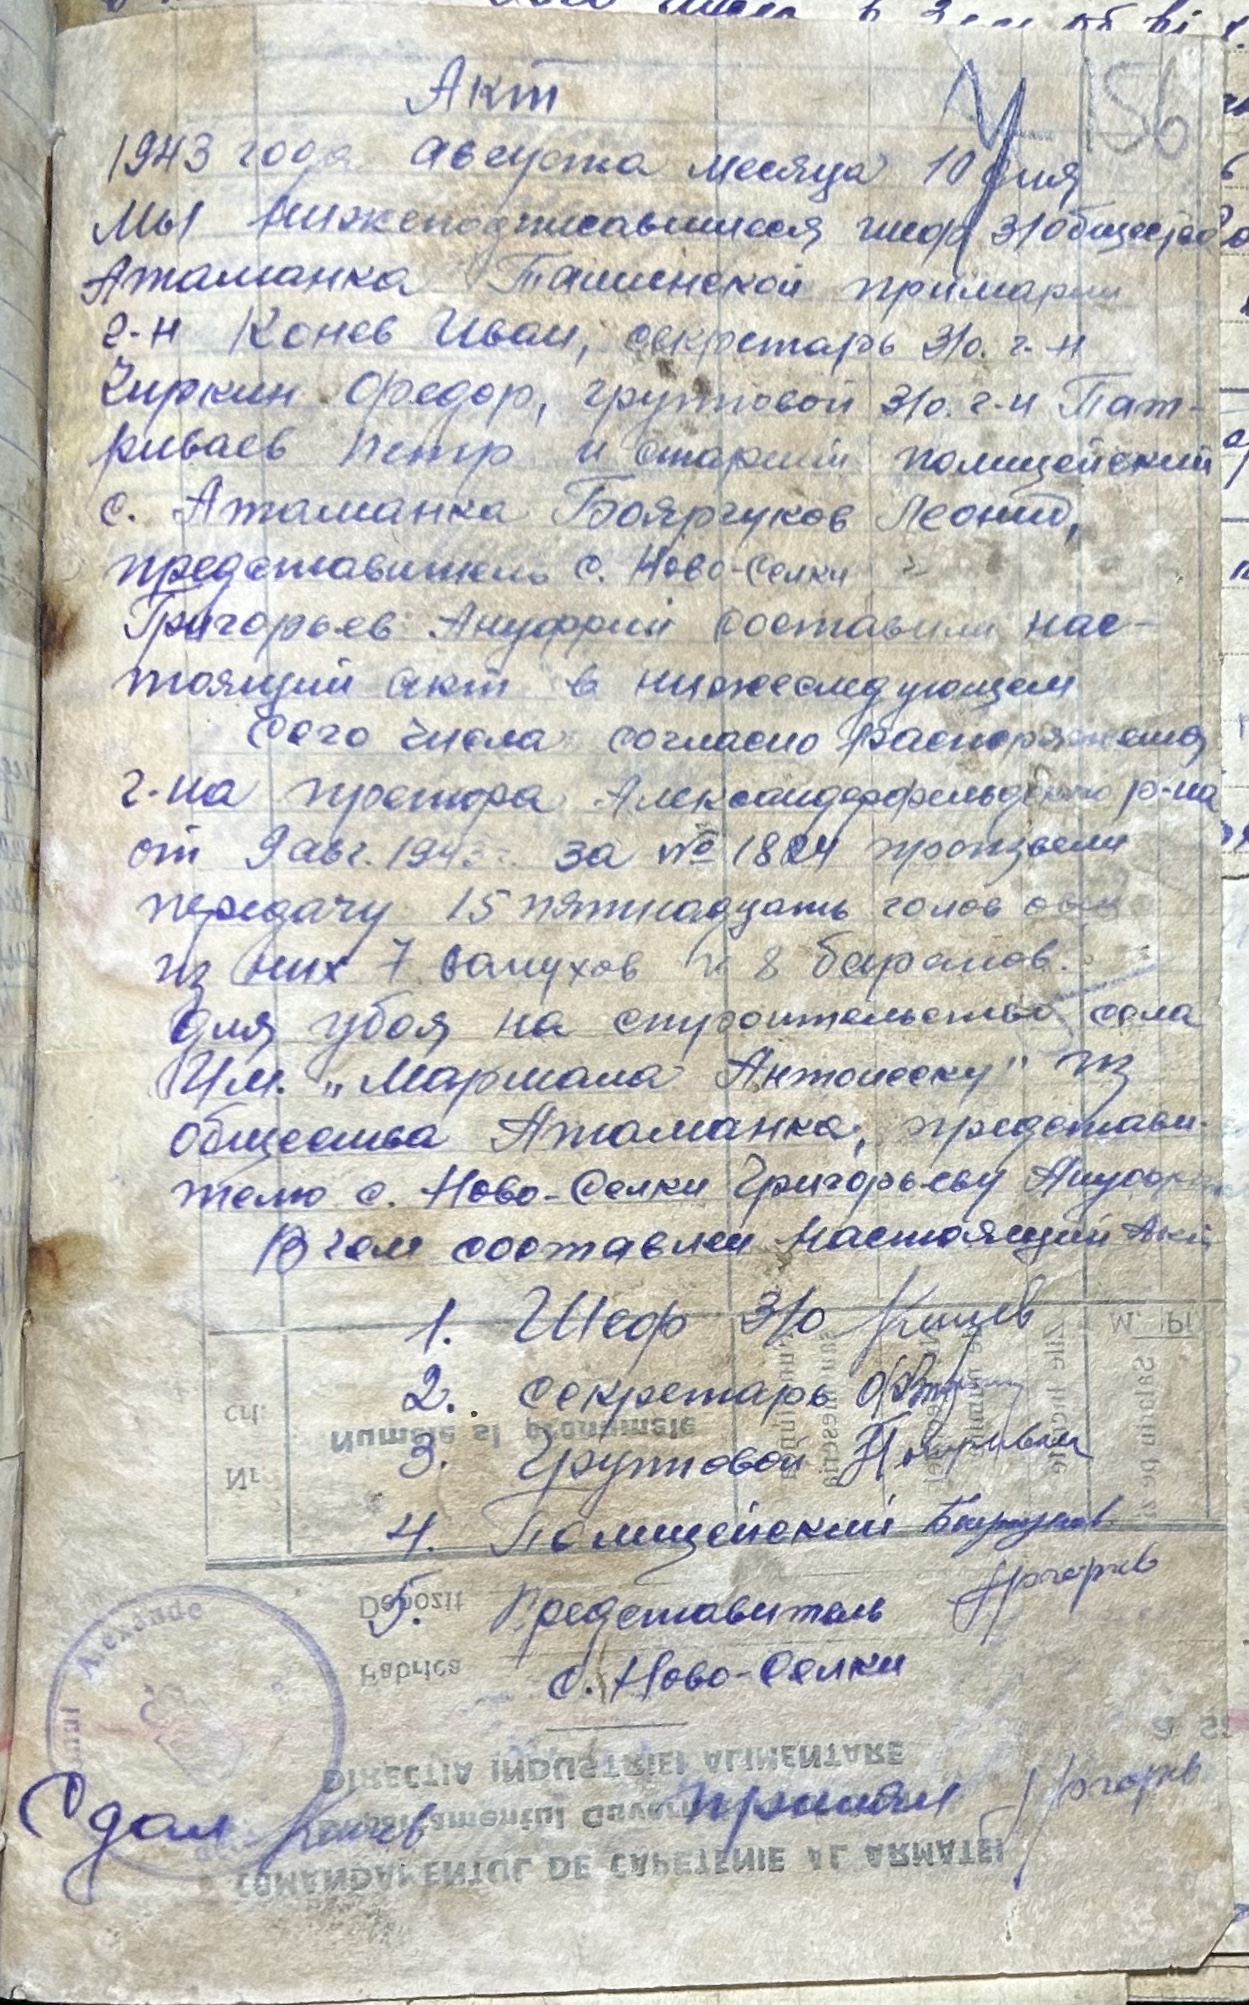 Акт
156
1943 года августа месяца 10 дня
Мы нижеподписавшиеся шеф з/общества
Атаманка Ташинской примарии
г-н Конев Иван, секретарь з/о. г-н
Чиркин Федор, групповой з/о. г-н Пат-
риваев Петр и старший полицейский
с. Атаманка Боярчуков Леонид,
представитель с. Ново-Селки
Григорьев Ануфрий составили нас-
тоящий акт в нижеследующем
Сего числа согласно распоряжения
г-на претора Александерфельдского р-на
от 9 авг. 1943 г. за № 1824 произвели
передачу 15 пятнадцать голов овец
из них 7 валухов и 8 баранов.
для убоя на строительство села
Им. „Маршала Антонеску" из
общества Атаманка, представи-
телю с. Ново-Селки Григорьеву Ануфрию
В чем составлен настоящий Акт
1. Шеф з/о Конев
2. Секретарь
3. Групповой
4. Полицейский
5. Представитель
с. Ново-Селки
Сдал Конев принял
Nr. crt.
Numele si pronumele
Depozit
Fabrica
DIRECTIA INDUSTRIEI ALIMENTARE
COMANDAMENTUL DE CAPETENIE AL ARMATEI